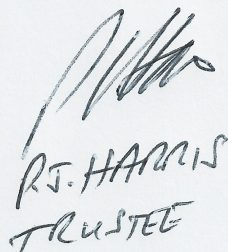 P.J. HARRIS
TRUSTEE